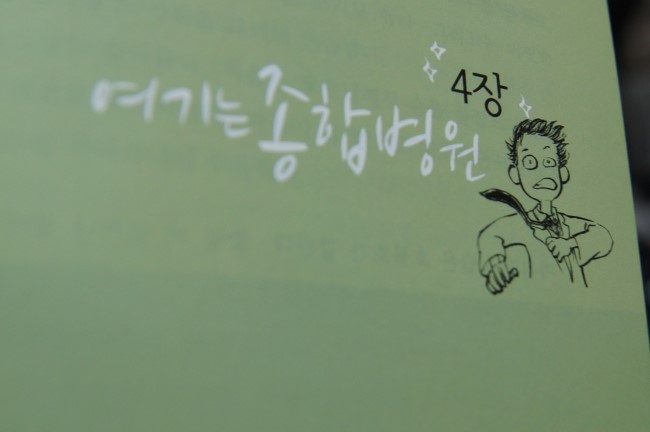 4장
여기는 종합병원